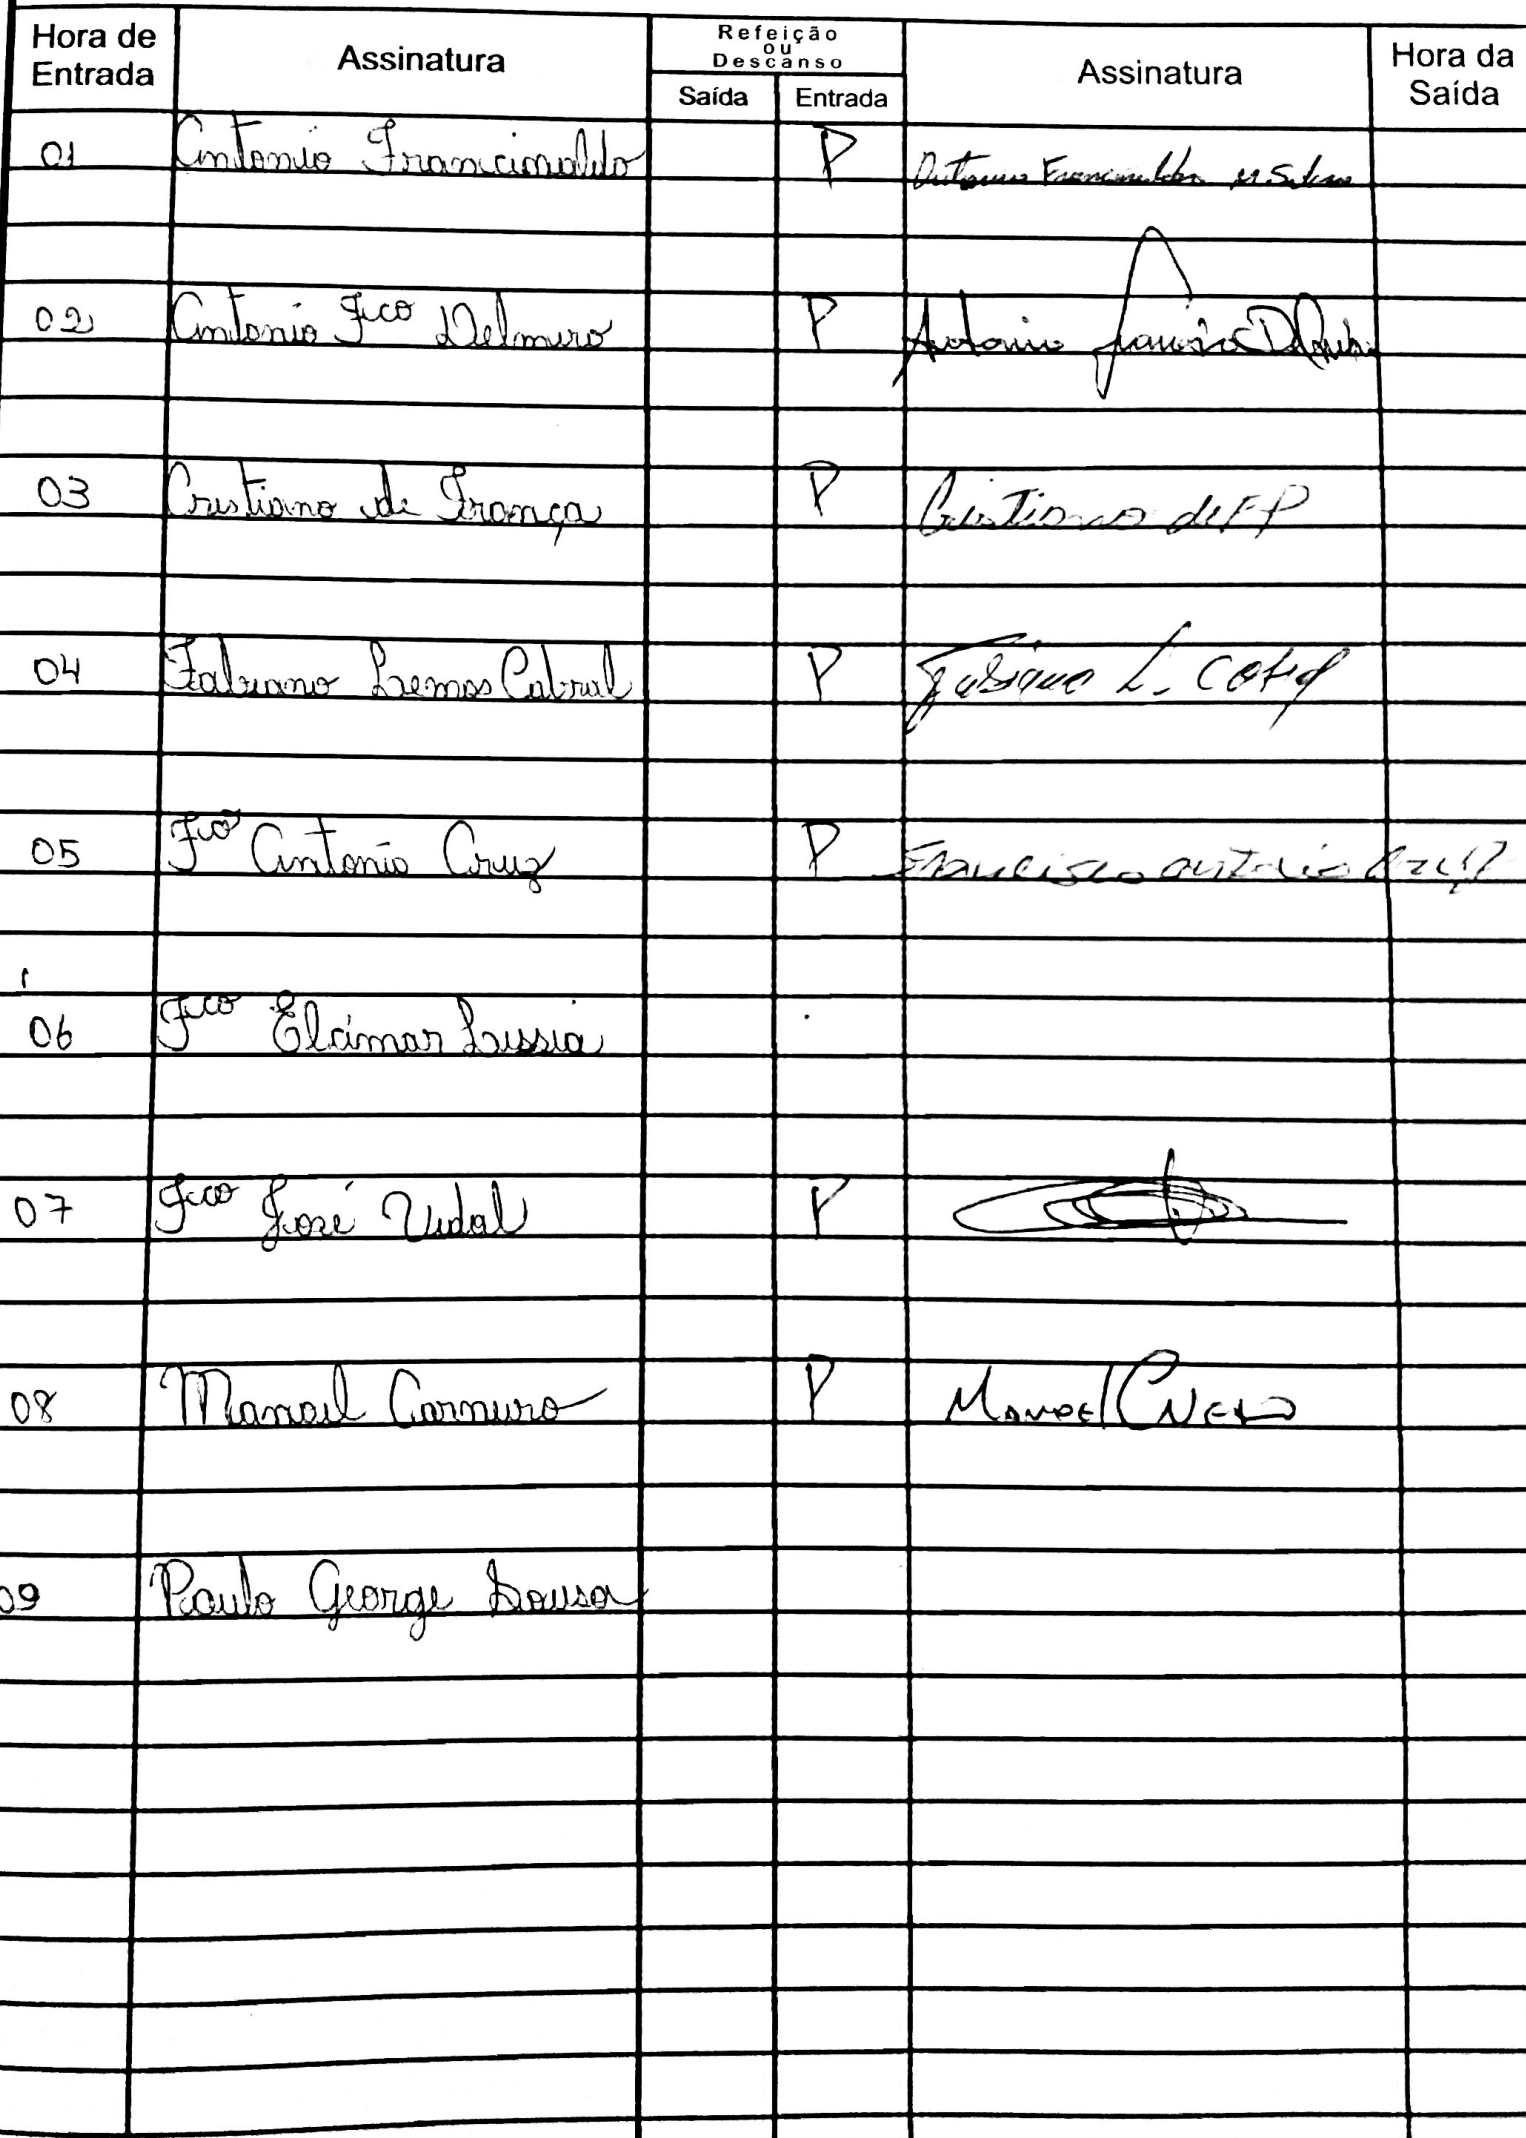 Hora de Entrada Assinatura Refeição ou Descanso Saída Entrada Assinatura Hora da Saída
01 Antonio Francinaldo P Francinaldo
02 Antonio Fco Delmiro P Antonio
03 Cristiano de França P Cristiano de F P
04 Fabiano Lemos Cabral P Fabiano L.
05 Fco Antonio Cruz P Francisco Antonio Cruz
06 Fco Elcimar
07 Fco José Vidal P
08 Manoel Carneiro P Manoel
09 Paulo George Sousa